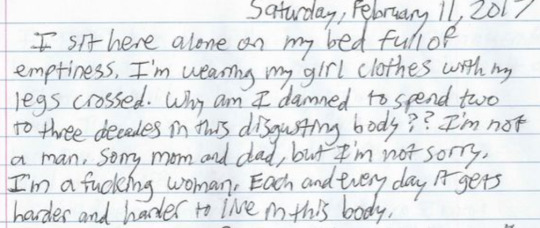 Saturday, February 11, 2017
I sit here alone on my bed full of
emptiness. I'm wearing my girl clothes with my
legs crossed. Why am I damned to spend two
to three decades in this disgusting body?? I'm not
a man. Sorry mom and dad, but I'm not sorry.
I'm a fucking woman. Each and every day it gets
harder and harder to live in this body.